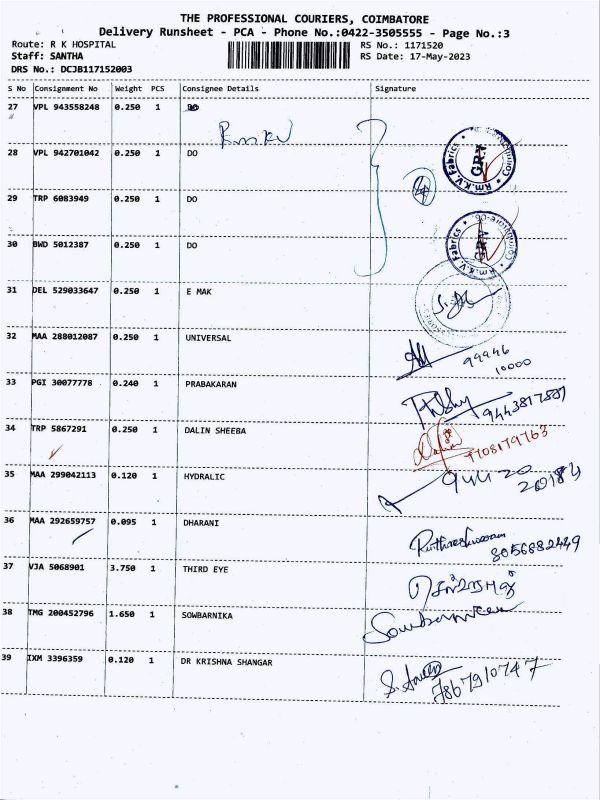 THE PROFESSIONAL COURIERS, COIMBATORE
Delivery Runsheet - PCA - Phone No.:0422-3505555 - Page No.:3
Route: R K HOSPITAL RS No.: 1171520
Staff: SANTHA RS Date: 17-May-2023
DRS No.: DCJB117152003
S No Consignment No Weight PCS Consignee Details Signature
27 VPL 943558248 0.250 1 DO
28 VPL 942701042 0.250 1 DO
Rm.K.V Fabrics GRV Coimbatore
29 TRP 6083949 0.250 1 DO
30 BWD 5012387 0.250 1 DO
Rm.K.V Fabrics GRV Coimbatore-06
31 DEL 529033647 0.250 1 E MAK
32 MAA 288012087 0.250 1 UNIVERSAL
99946
10000
33 PGI 30077778 0.240 1 PRABAKARAN
34 TRP 5867291 0.250 1 DALIN SHEEBA
9708179763
35 MAA 299042113 0.120 1 HYDRALIC
36 MAA 292659757 0.095 1 DHARANI
8056882449
37 VJA 5068901 3.750 1 THIRD EYE
38 TMG 200452796 1.650 1 SOWBARNIKA
Sowbarnica
39 IXM 3396359 0.120 1 DR KRISHNA SHANGAR
7867910747